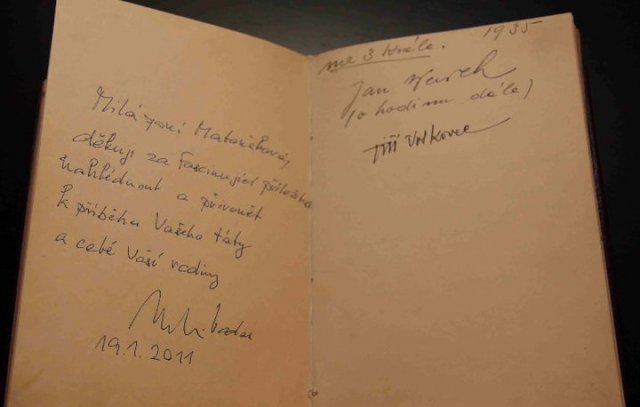 Milá paní Matouškova,
děkuji za fascinující příležitost
nahlédnout a přivonět
k příběhu Vašeho táty
a celé Vaší rodiny
19.1.2011
na 3 krále. 1935
Jan Werich
(o hodinu dále)
Jiří Voskovec